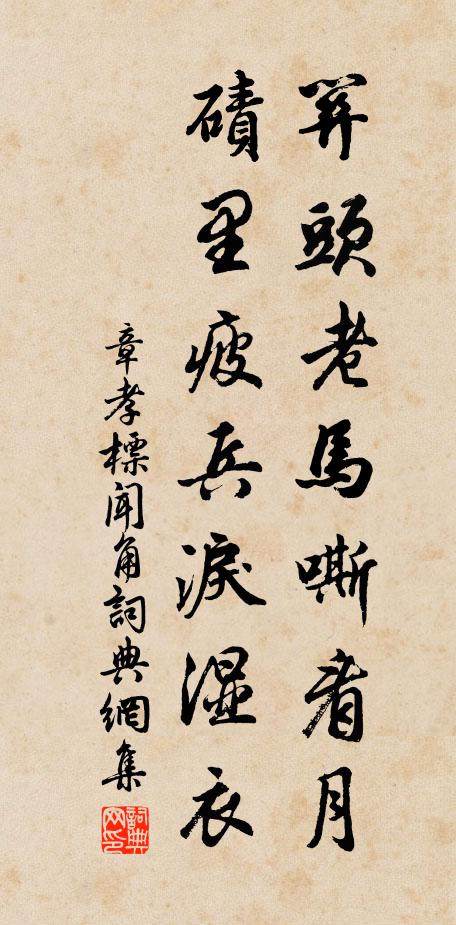 笄頭老馬嘶看月
磧里疲兵淚湿衣
章孝標聞角詞典網集
詞典网印